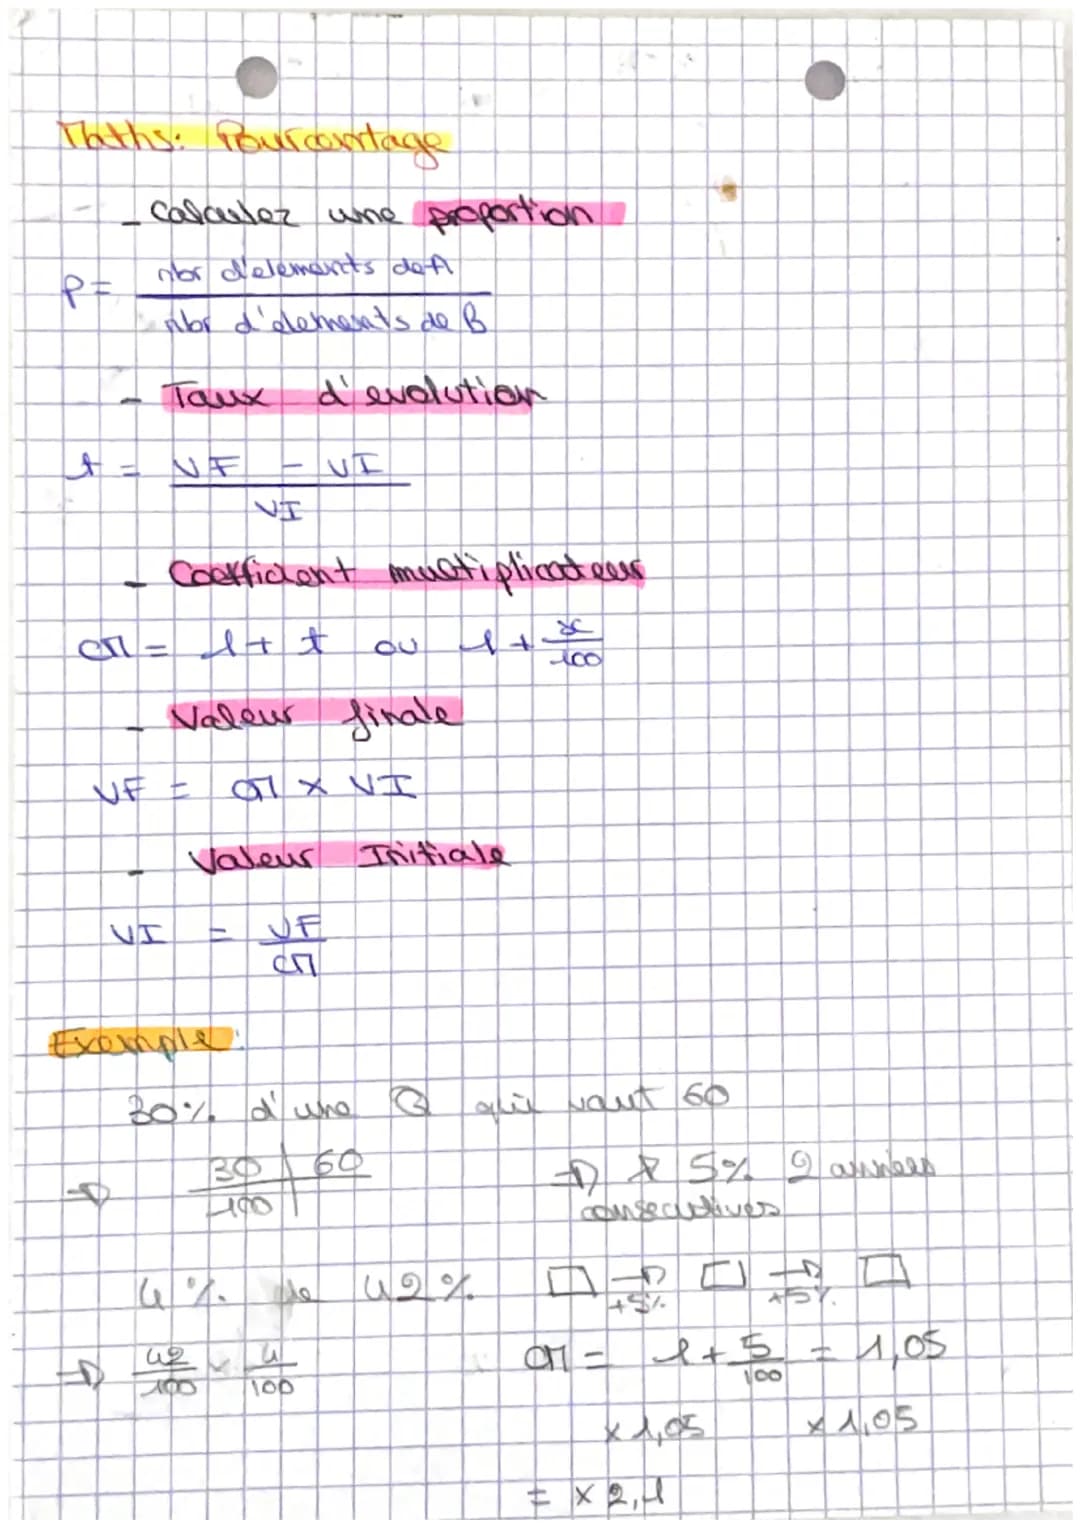 Maths: Pourcentage
- Calculez une proportion
P = nbr d'elements de A
nbr d'elements de B
- Taux d'evolution
t = VF - VI
VI
- Coefficient multiplicateur
CM = 1 + t ou 1 + x/100
- Valeur finale
VF = CM x VI
- Valeur Initiale
VI = VF
CM
Exemple:
30% d'une Q qui vaut 60
⇒ 30 | 60
100
4% de 42%
⇒ 42/100 x 4/100
⇒ 5% 2 années
consecutives
□ ⇒ □ ⇒ □
+5% +5%
CM = 1 + 5/100 = 1,05
x 1,05 x 1,05
= x 2,1